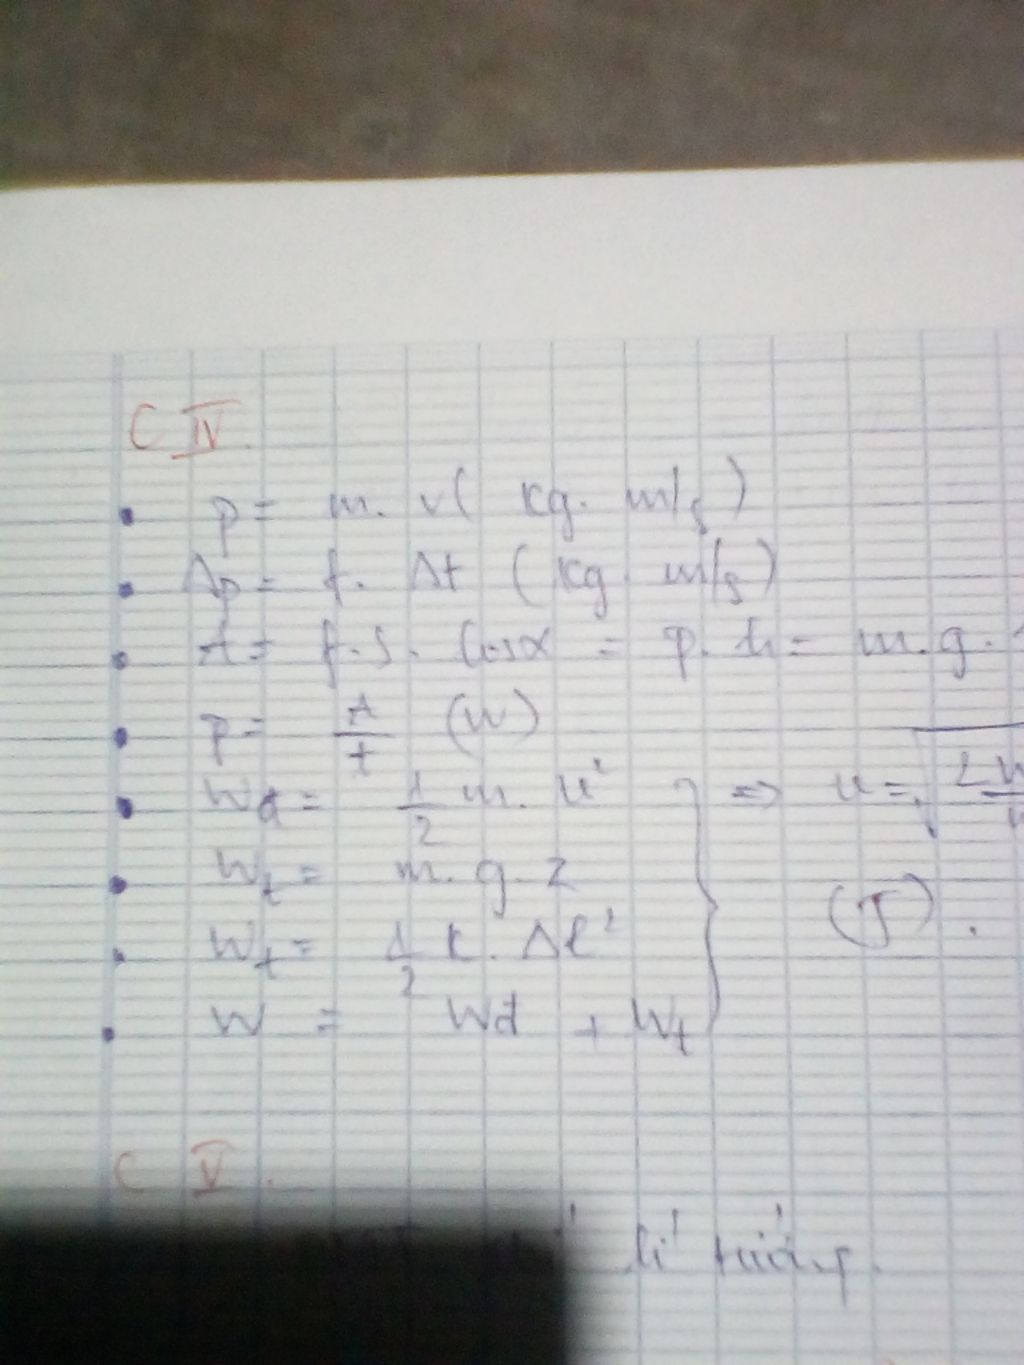 C IV.
p = m. v ( kg. m/s )
Δp = f. Δt ( kg m/s )
A = f. s. cosα = p. h = m. g.
p = A/t (W)
Wđ = 1/2 m. v² ⇒ v = √
Wt = m. g. z
(J).
Wt = 1/2 k. Δl²
W = Wđ + Wt
C V.
lí tưởng.